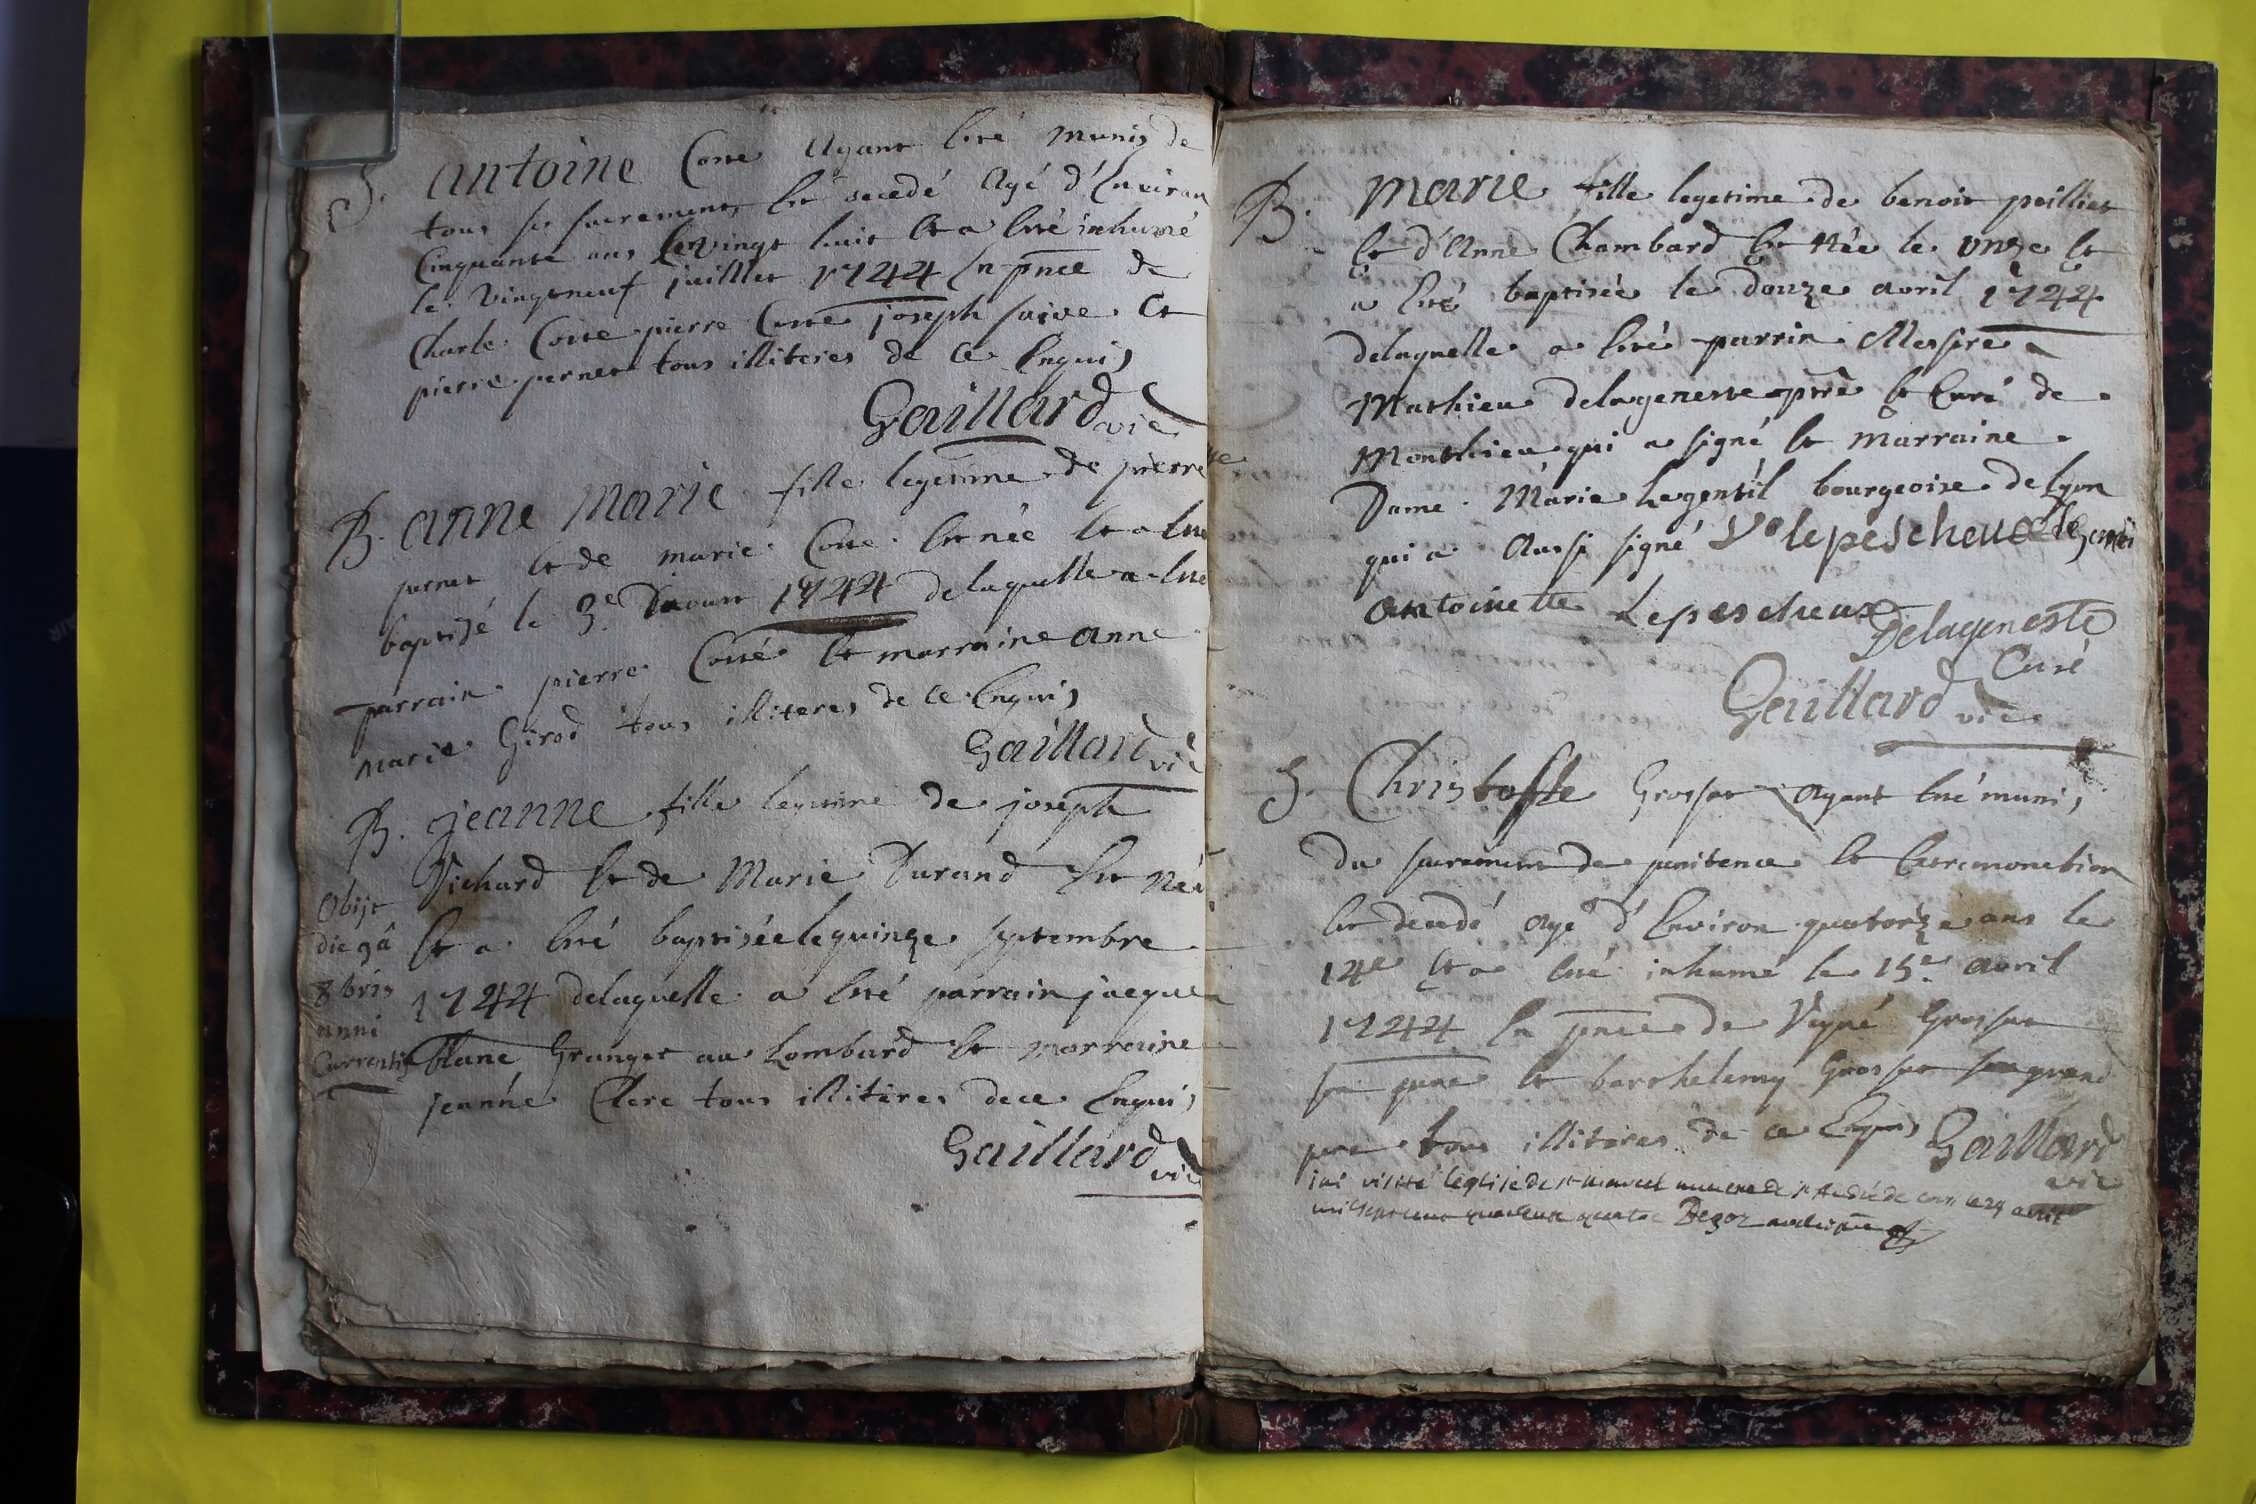 S. antoine Coste Ayant Esté munis de
tous ses sacrements Est decedé Agé d'Environ
Cinquante ans le vingt huit Et a Esté inhumé
le vingtneuf juillet 1744 En pnce de
Charle Coste pierre Coste joseph suive Et
pierre pernet tous illiteres de ce Enquis
Gaillard vic
B. anne marie fille legetime de pierre
pernet Et de marie Coste Est née Et a Esté
baptisé le 3e D'aoust 1744 delaquelle a Esté
parrain pierre Costé Et marraine anne
marie Girod tous illiteres de ce Enquis
Gaillard vic
B. jeanne fille legetime de joseph
Vichard Et de Marie Durand Est née
Et a Esté baptisée le quinze septembre
1744 delaquelle a Esté parrain jacque
blanc Granger au Lombard Et marraine
jeanne Clerc tous illiteres de ce Enquis
Gaillard vic
Obijt
die 9a
8bris
anni
Currentis
B. Marie fille legetime de benoit peillier
Et d'Anne Chambard Est Née le onze Et
a Esté baptisée le douze avril 1744
delaquelle a Esté parrin Messire
Mathieu delageneste ptre Et Curé de
Monthieu qui a signé Et marraine
Dame Marie Legentil bourgeoise de Lyon
qui a Aussi signé Ve lepescheux
antoinette Lepescheux Delageneste
Curé
Gaillard vic
S. Christofle Grosset Ayant Esté munis
du sacrement de penitence Et Extremonction
Est decedé Agé d'Environ quatorze ans le
14e Et a Esté inhumé le 15e avril
1744 En pnce de Grosset
son pere Et barthelemy Grosset son grand
pere tous illiteres de ce Enquis Gaillard
vic
jai visité léglise de st marcel annexe de st André de corcy le 29 avril
mil sept cent quarante quatre